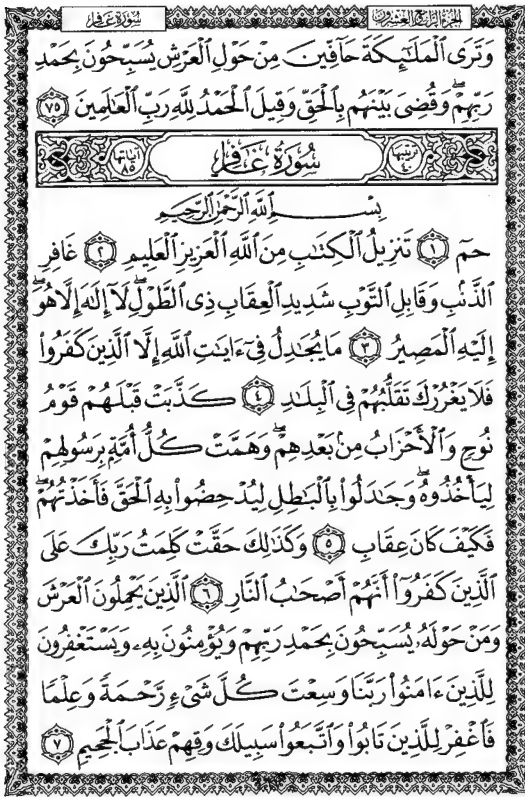 الجزء الرابع والعشرون
سورة غافر
وَتَرَى الْمَلَٰٓئِكَةَ حَآفِّينَ مِنْ حَوْلِ الْعَرْشِ يُسَبِّحُونَ بِحَمْدِ
رَبِّهِمْ ۖ وَقُضِىَ بَيْنَهُم بِالْحَقِّ وَقِيلَ الْحَمْدُ لِلَّهِ رَبِّ الْعَٰلَمِينَ ٧٥
ترتيبها ٤٠ سُورَةُ غَافِرٍ آياتها ٨٥
بِسْمِ اللَّهِ الرَّحْمَٰنِ الرَّحِيمِ
حمٓ ١ تَنزِيلُ الْكِتَٰبِ مِنَ اللَّهِ الْعَزِيزِ الْعَلِيمِ ٢ غَافِرِ
الذَّنۢبِ وَقَابِلِ التَّوْبِ شَدِيدِ الْعِقَابِ ذِى الطَّوْلِ ۖ لَآ إِلَٰهَ إِلَّا هُوَ ۖ
إِلَيْهِ الْمَصِيرُ ٣ مَا يُجَٰدِلُ فِىٓ ءَايَٰتِ اللَّهِ إِلَّا الَّذِينَ كَفَرُوا۟
فَلَا يَغْرُرْكَ تَقَلُّبُهُمْ فِى الْبِلَٰدِ ٤ كَذَّبَتْ قَبْلَهُمْ قَوْمُ
نُوحٍ وَالْأَحْزَابُ مِنۢ بَعْدِهِمْ ۖ وَهَمَّتْ كُلُّ أُمَّةٍۭ بِرَسُولِهِمْ
لِيَأْخُذُوهُ ۖ وَجَٰدَلُوا۟ بِالْبَٰطِلِ لِيُدْحِضُوا۟ بِهِ الْحَقَّ فَأَخَذْتُهُمْ ۖ
فَكَيْفَ كَانَ عِقَابِ ٥ وَكَذَٰلِكَ حَقَّتْ كَلِمَتُ رَبِّكَ عَلَى
الَّذِينَ كَفَرُوٓا۟ أَنَّهُمْ أَصْحَٰبُ النَّارِ ٦ الَّذِينَ يَحْمِلُونَ الْعَرْشَ
وَمَنْ حَوْلَهُۥ يُسَبِّحُونَ بِحَمْدِ رَبِّهِمْ وَيُؤْمِنُونَ بِهِۦ وَيَسْتَغْفِرُونَ
لِلَّذِينَ ءَامَنُوا۟ رَبَّنَا وَسِعْتَ كُلَّ شَىْءٍ رَّحْمَةً وَعِلْمًا
فَاغْفِرْ لِلَّذِينَ تَابُوا۟ وَاتَّبَعُوا۟ سَبِيلَكَ وَقِهِمْ عَذَابَ الْجَحِيمِ ٧